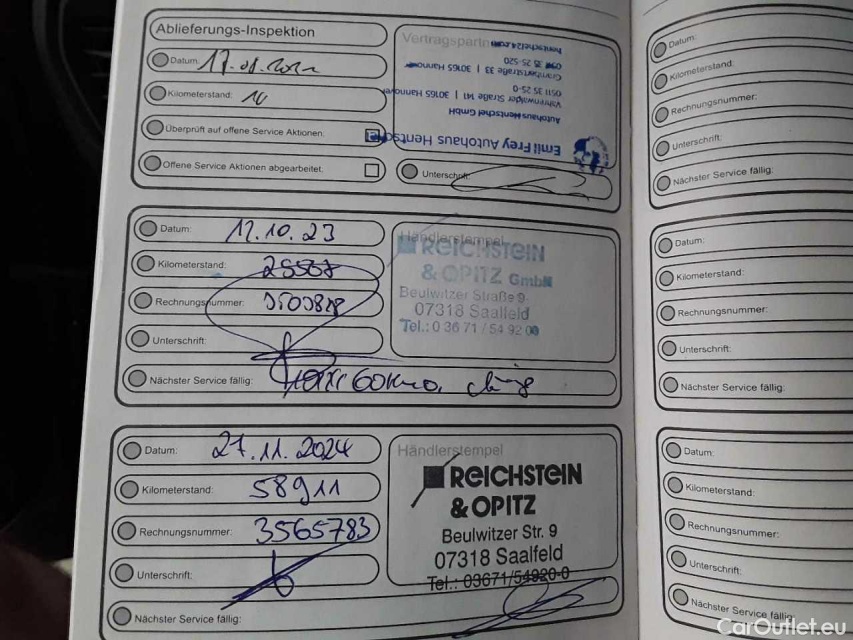 Ablieferungs-Inspektion
Datum:
Kilometerstand: 10
Überprüft auf offene Service Aktionen:
Offene Service Aktionen abgearbeitet:
Vertragspartn
Emil Frey Autohaus Hentsche
Autohaus Hentschel GmbH
Vahrenwalder Straße 141 | 30165 Hannover
0511 35 25-0
33 | 30165 Hannover
hentschel24.com
Unterschrift:
Datum: 12.10.23
Kilometerstand:
Rechnungsnummer:
Unterschrift:
Nächster Service fällig:
Händlerstempel
REICHSTEIN
& OPITZ GmbH
Beulwitzer Straße 9
07318 Saalfeld
Tel.: 0 36 71 / 54 92 00
Datum: 27.11.2024
Kilometerstand: 58911
Rechnungsnummer: 3565783
Unterschrift:
Nächster Service fällig:
Händlerstempel
REICHSTEIN
& OPITZ
Beulwitzer Str. 9
07318 Saalfeld
Tel.: 03671/54920-0
Datum:
Kilometerstand:
Rechnungsnummer:
Unterschrift:
Nächster Service fällig:
Datum:
Kilometerstand:
Rechnungsnummer:
Unterschrift:
Nächster Service fällig:
Datum:
Kilometerstand:
Rechnungsnummer:
Unterschrift:
Nächster Service fällig:
CarOutlet.eu